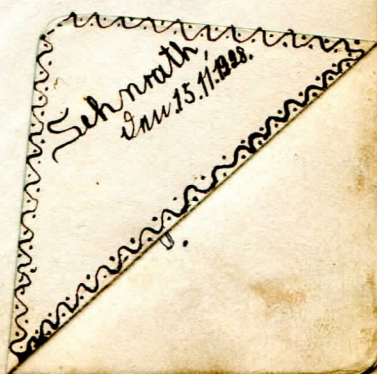 Sehnrath,
den 15.11.1928.